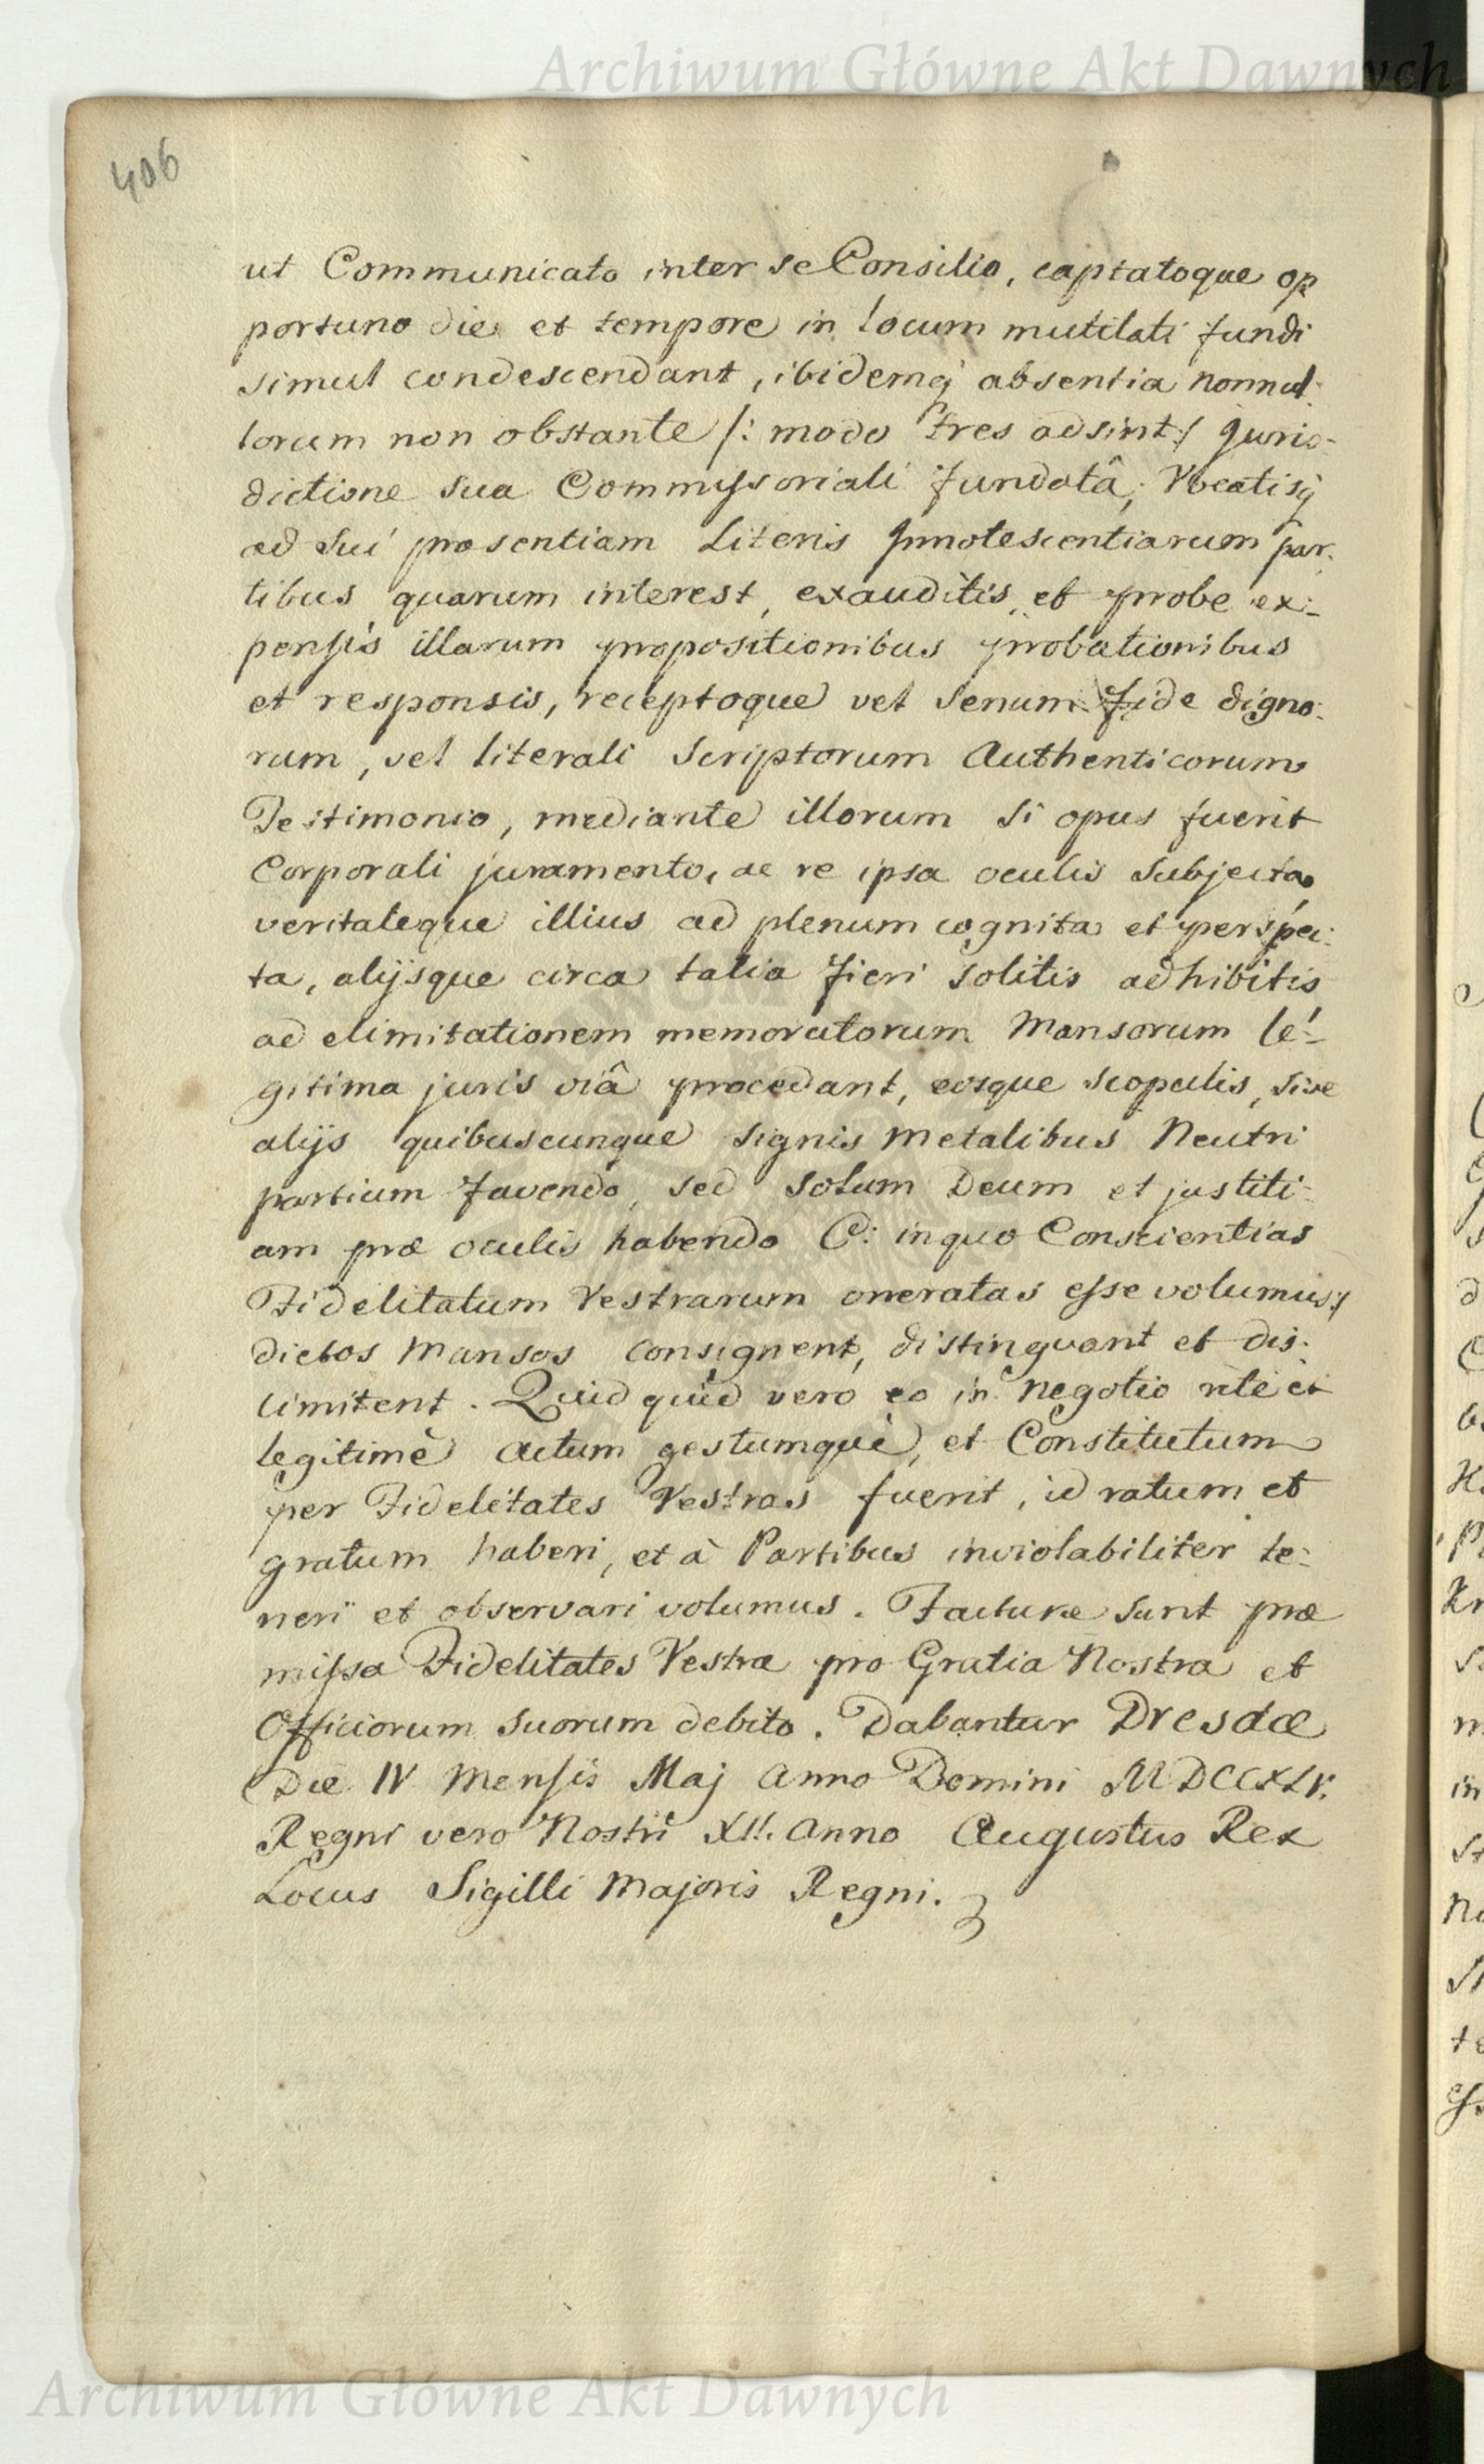 Archiwum Główne Akt Dawnych
406
ut Communicato inter se Consilio, captatoque op
portuno die et tempore in locum mutilati fundi
simul condescendant, ibidemq absentia nonnul:
lorum non obstante /: modo tres adsint :/ juris-
dictione sua Commissoriali fundatâ, Vocatisq
ad sui præsentiam Literis Innotescentiarum par:
tibus quarum interest, exauditis et probe ex:
pensis illarum propositionibus probationibus
et responsis, receptoque vel Senum fide digno:
rum, vel literali Scriptorum Authenticorum
Testimonio, mediante illorum si opus fuerit
Corporali juramento, ac re ipsa oculis subjecta,
veritateque illius ad plenum cognita et perspec:
ta, alijsque circa talia fieri solitis adhibitis
ad elimitationem memoratorum Mansorum le:
gitima juris viâ procedant, eosque scopulis, sive
alijs quibuscunque signis metalibus Neutri
partium favendo, sed solum Deum et justiti:
am præ oculis habendo /: in quo Conscientias
Fidelitatum Vestrarum oneratas esse volumus :/
dictos Mansos consignent, distinguant et dis:
limitent. Quid quid vero eo in negotio rite et
legitimè actum gestumquè, et Constitutum
per Fidelitates Vestras fuerit, id ratum et
gratum haberi, et à Partibus inviolabiliter te:
neri et observari volumus. Facturæ sunt præ
missa Fidelitates Vestræ pro Gratia Nostra et
Officiorum suorum debito. Dabantur Dresdæ
Die IV Mensis Maj Anno Domini MDCCXLV.
Regni vero Nostri XII. Anno Augustus Rex
Locus Sigilli Majoris Regni.
Archiwum Główne Akt Dawnych